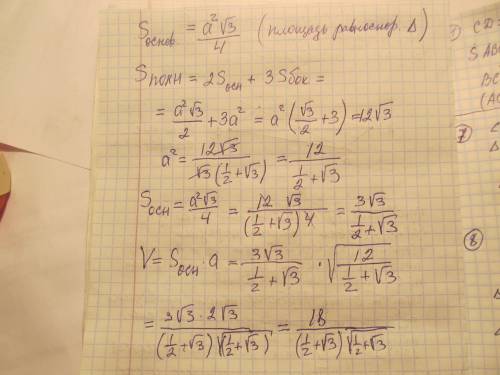 Sоснов. = a²√3/4 (площадь равностор. Δ)
Sполн = 2Sосн + 3Sбок =
= a²√3/2 + 3a² = a²(√3/2 + 3) = 12√3
a² = 12√3/(√3(1/2 + √3)) = 12/(1/2 + √3)
Sосн = a²√3/4 = 12 √3/((1/2 + √3) 4) = 3√3/(1/2 + √3)
V = Sосн · a = 3√3/(1/2 + √3) · √(12/(1/2 + √3))
= 3√3 · 2√3/((1/2 + √3)√(1/2 + √3)) = 18/((1/2 + √3)√(1/2 + √3))
3) CD =
S ABC
BC
(AC
7
8